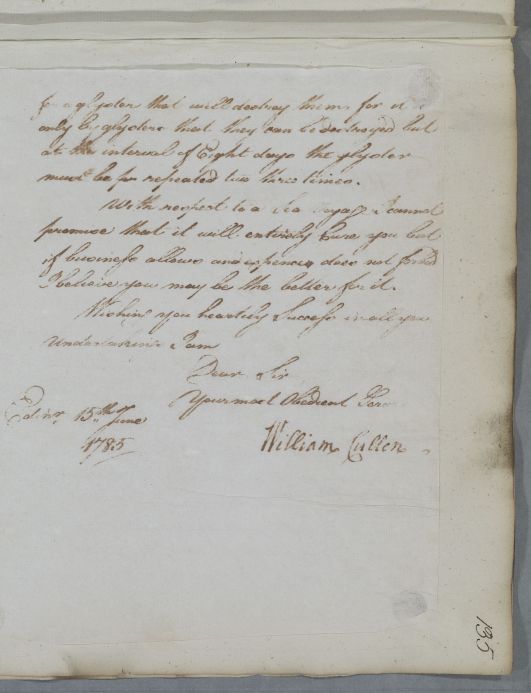 for a glyster that will destroy them for it is
only by glysters that they can be destroyed but
at the interval of Eight days the glyster
must be repeated two three times.
With respect to a Sea Voyage I cannot
promise that it will entirely Cure you but
if business allows and expences does not forbid
I believe you may be the better for it.
Wishing you heartily Success in all your
undertakings I am
Dear Sir
Your most Obedient Serv
Edinr 15th of June
1785
William Cullen
135